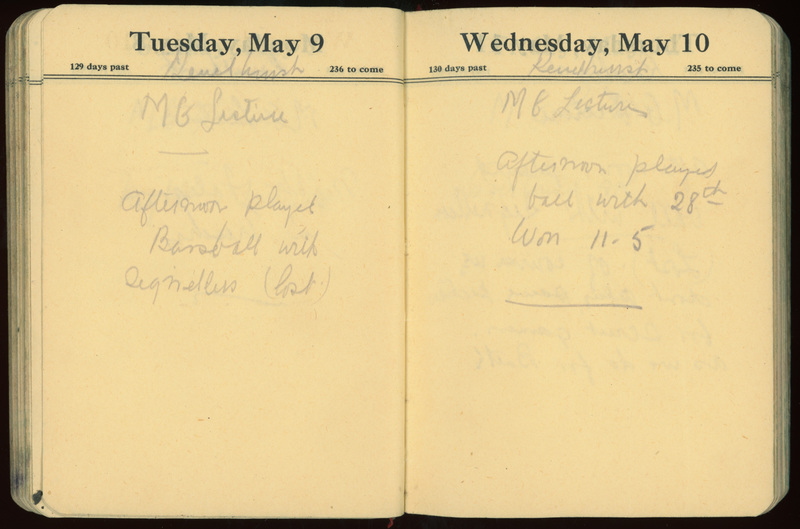 Tuesday, May 9
129 days past
236 to come
M G Lecture
Afternoon played
Baseball with
(Lost)
Wednesday, May 10
130 days past
235 to come
M G Lecture
Afternoon played
ball with 28th
Won 11-5